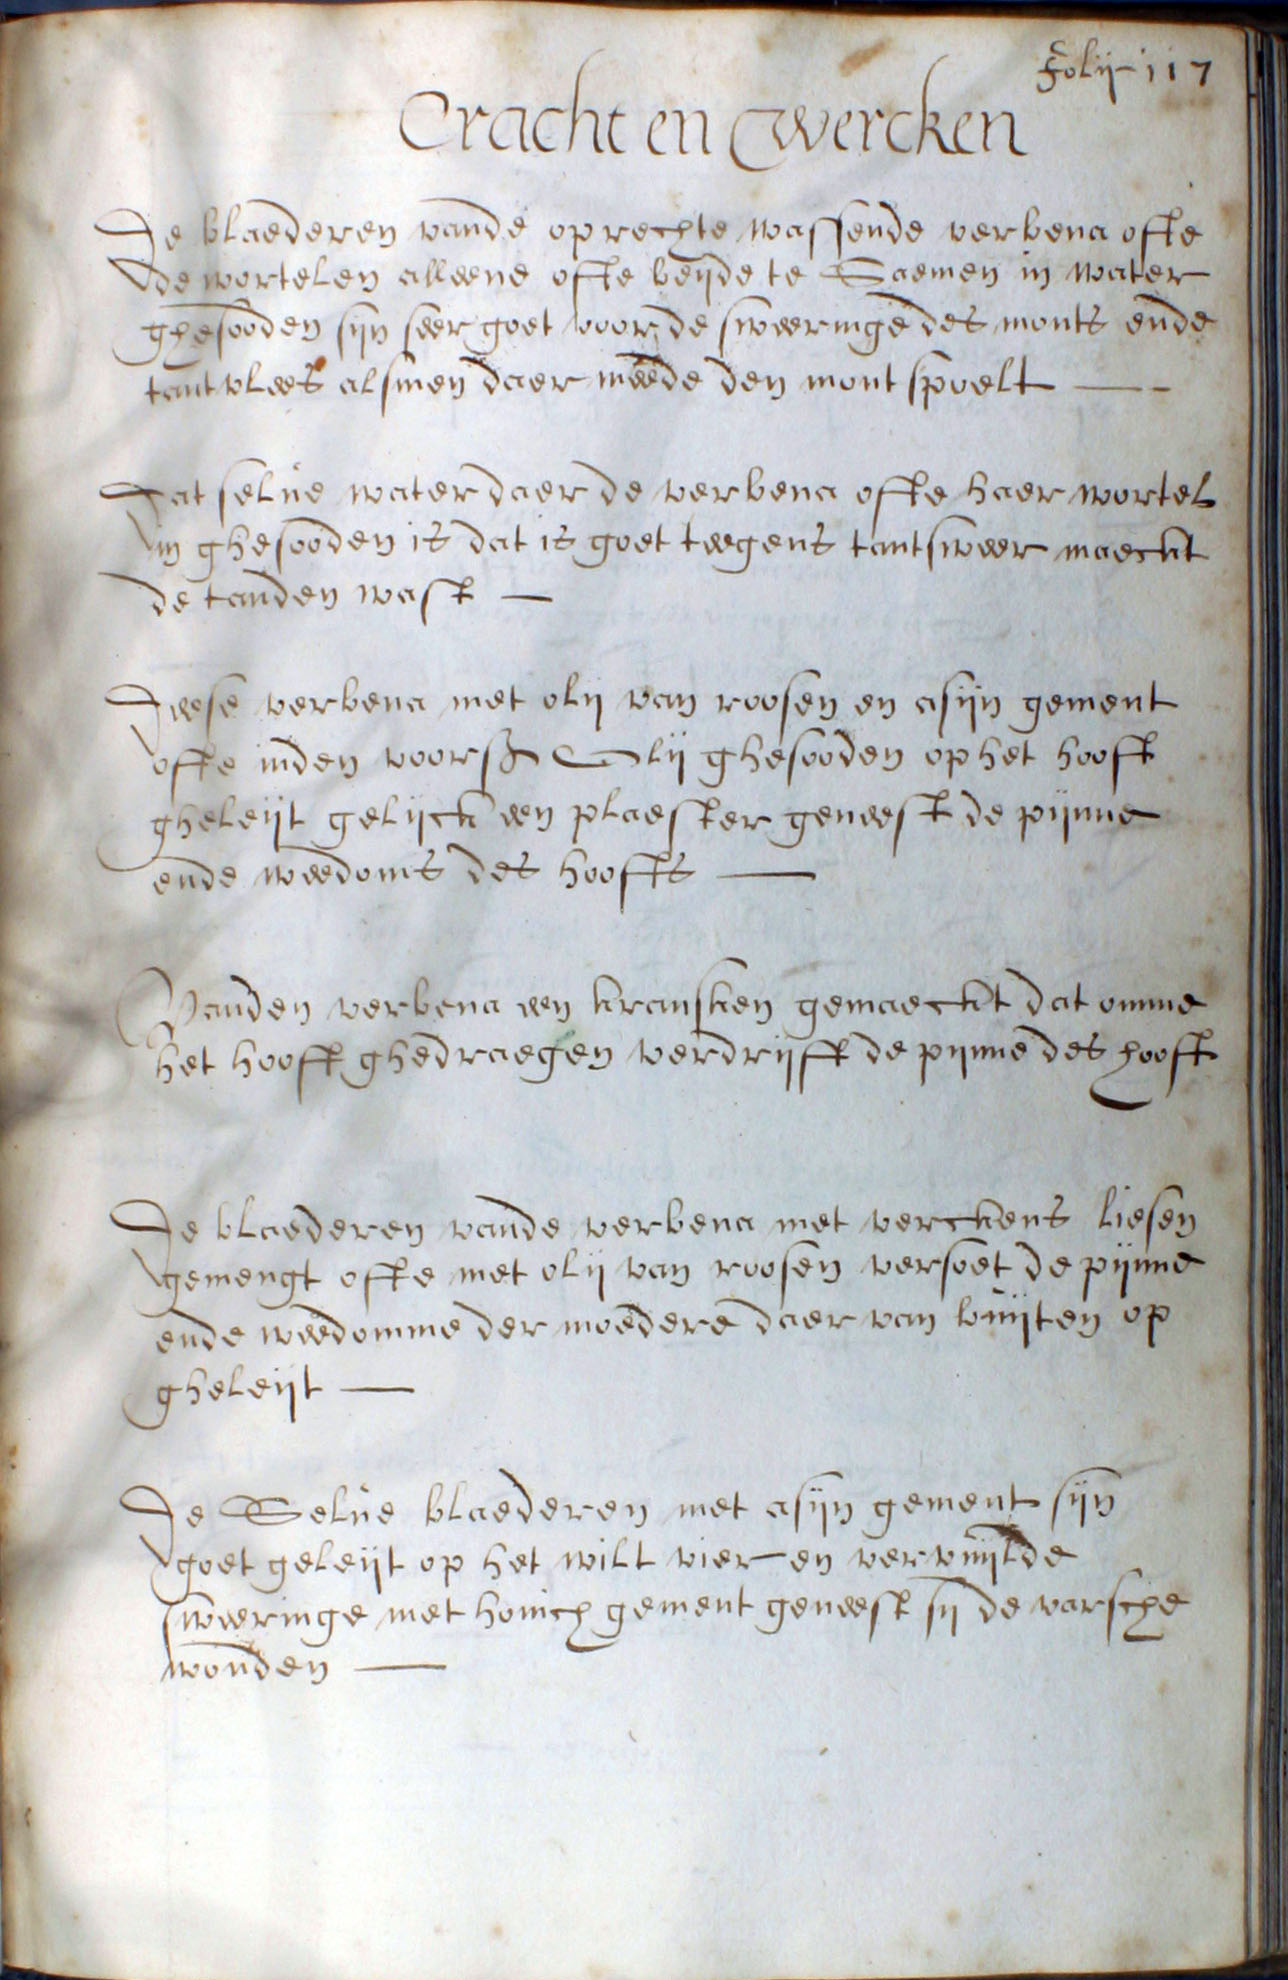 Folij 117
Cracht en Wercken
De blaederen vande oprechte wassende verbena ofte
de wortelen alleene ofte beijde te Saemen in water
ghesooden sijn seer goet voor de sweeringe des monts ende
tant vlees alsmen daer meede den mont spoelt
Dat selue water daer de verbena ofte haer wortel
in ghesooden is dat is goet teegens tantsweer maeckt
de tanden vast
Deese verbena met olij van roosen en asijn gement
ofte inden voors Olij ghesooden op het hooft
gheleijt gelijck een plaester geneest de pijnne
ende weedoms des hoofts
Vanden verbena een kransken gemaeckt dat omme
het hooft ghedraegen verdrijft de pijnne des hooft
De blaederen vande verbena met verckens liesen
gemengt ofte met olij van roosen versoet de pijnne
ende weedomme der moedere daer van buijten op
gheleijt
De Selue blaederen met asijn gement sijn
goet geleijt op het wilt vier en vervuijlde
sweeringe met honich gement geneest sij de varsche
wonden